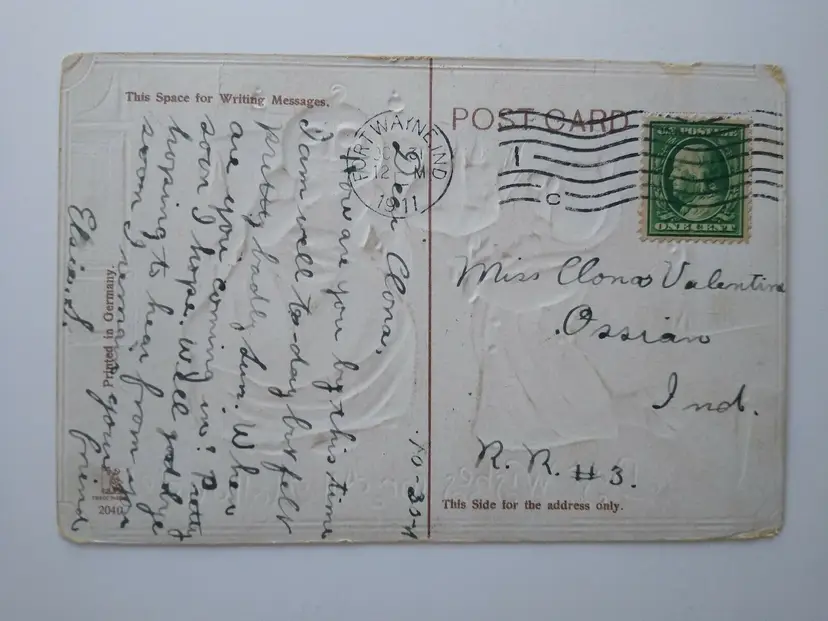 This Space for Writing Messages.
10-30-11
Dear Clona,
How are you by this time
I am well to-day but felt
pretty badly Sun. When
are you coming in? Pretty
soon I hope. Well good bye
hoping to hear from you
soon I remain your friend
Elsie. S.
Printed in Germany.
2040
POST CARD
FORT WAYNE IND
OC 31
12 M
1911
1
C
U.S. POSTAGE
ONE CENT
Miss Clona Valentine
Ossian
Ind.
R. R. #3.
This Side for the address only.